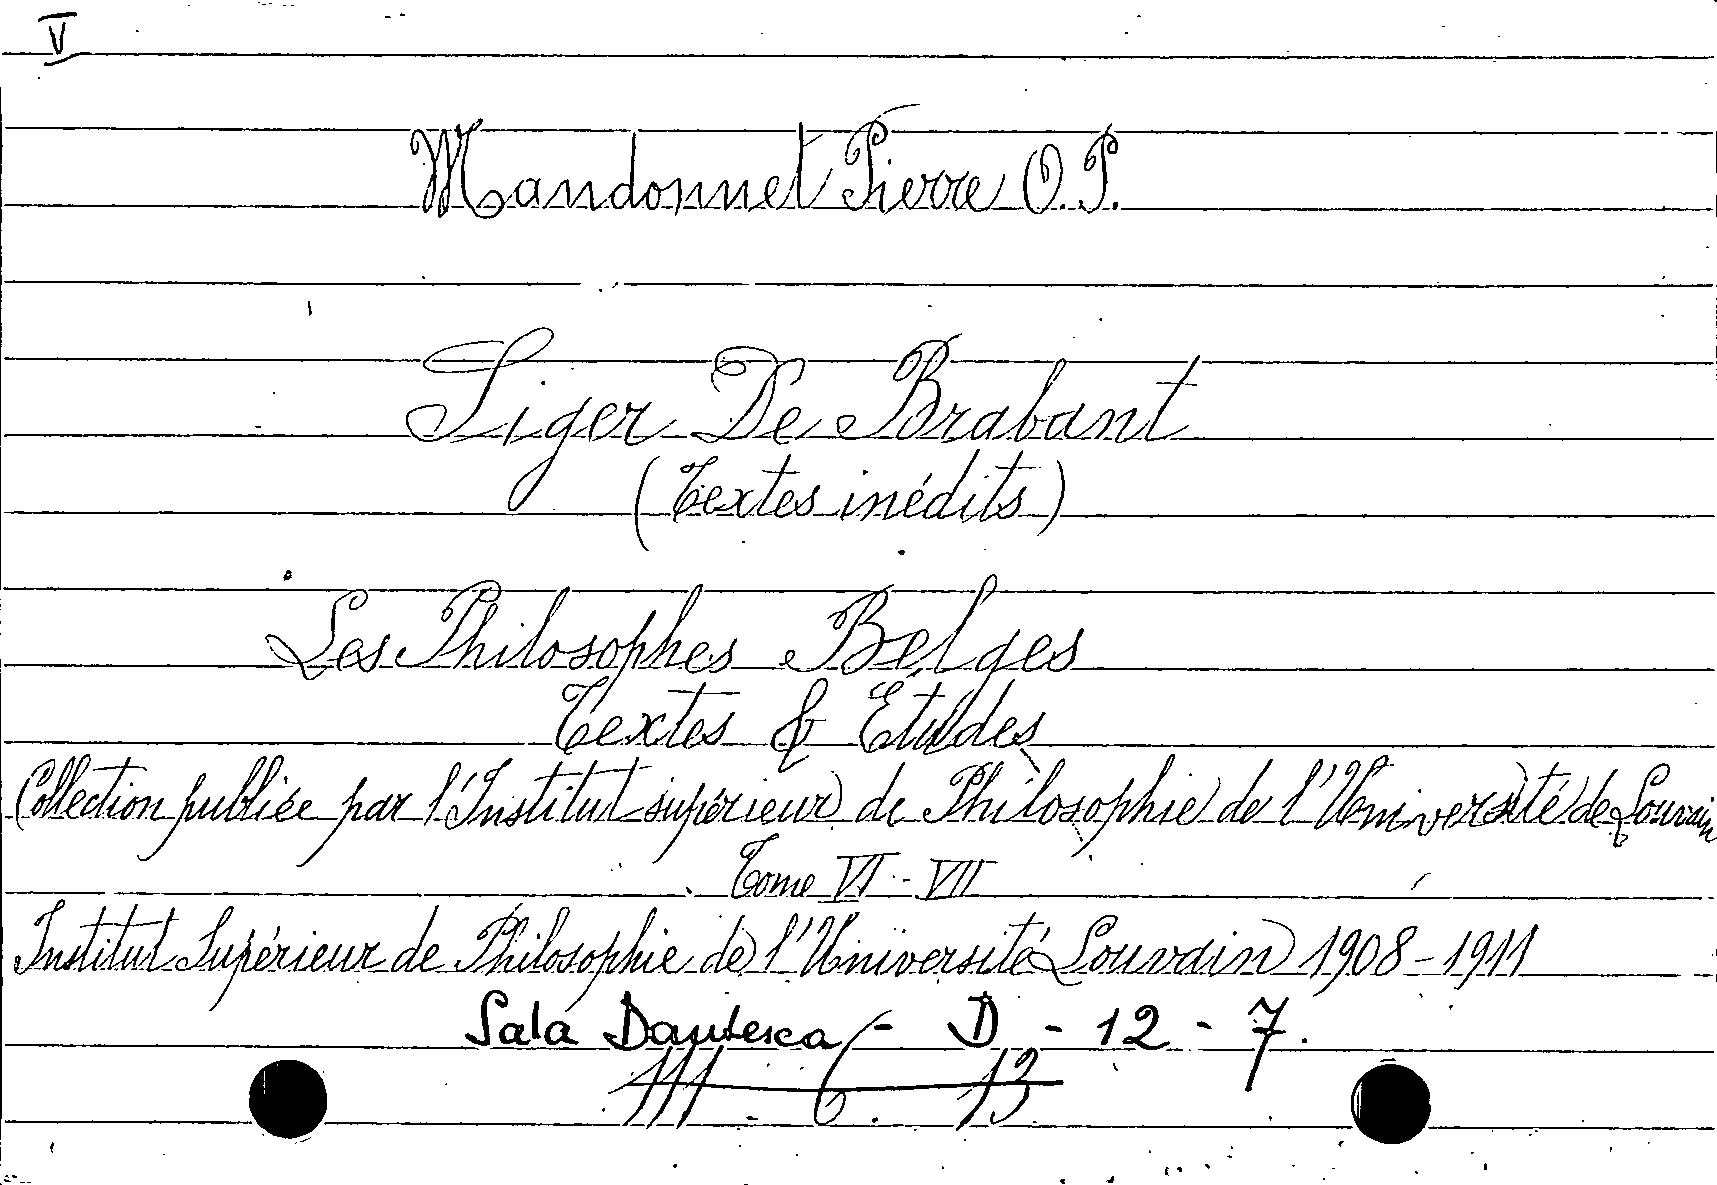 V
Mandonnet Pierre O.P.
Siger De Brabant
(Textes inédits)
Les Philosophes Belges
Textes & Etudes
Collection publiée par l'Institut supérieur de Philosophie de l'Université de Louvain
Tome VI - VII
Institut Supérieur de Philosophie de l'Université Louvain 1908-1911
Sala Dantesca - D - 12 - 7.
III. 6. 13